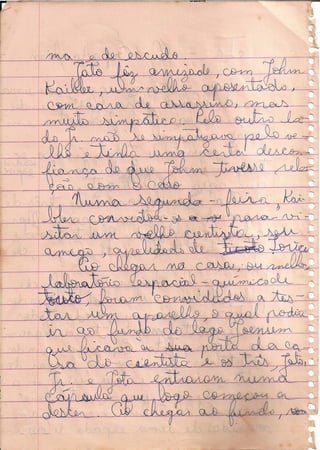 ma e de escudo
Jato fêz amizade, com John
Kaibler, um velho aposentado,
com cara de assassino, mas
muito simpático. Pelo outro la-
do Jr. não se simpatizava pelo ve-
lho e tinha uma certa descon-
fiança de que John tivesse rela-
ção com o caso
Numa segunda-feira, Kai-
bler convidou-os para vi-
sitar um velho cientista, seu
amigo, apelidado de
Ao chegar na casa, ou melhor,
laboratório espacial-químico de
foram convidados a tes-
tar um aparelho, o qual podia
ir ao fundo do lago Joenium
que ficava à sua porta da ca-
sa do cientista e os três, Jato,
Jr. e Jota entraram numa
cápsula que logo começou a
descer. Ao chegar ao fundo,